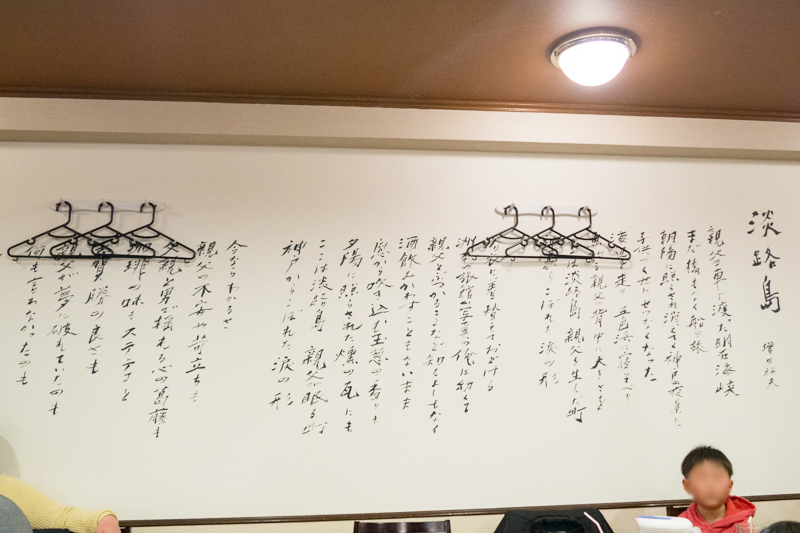 淡路島
親父の車で渡った明石海峡
まだ橋もなく船の旅
朝陽に照らされ 神戸の夜景に
子供心にせつなくなった
走り 五色浜で寝そべり
親父の背中に大きさを
は淡路島 親父を生した町
からこぼれた涙の形
浴衣に着替えておどける
洲本の旅館の写真の俺は幼くて
親父とぶつかることなど知るよしもなく
酒飲みかわすこともないまま
窓から吹き込む玉葱の香りも
夕陽に照らされた燻の瓦にも
ここは淡路島 親父が眠る町
神戸からこぼれた涙の形
今ならわかるぜ
親父の不安や苛立ちも
父親と男で揺れる心の葛藤も
珈琲の味もステテコと
勝の良さも
親父が夢に破れていたのも
何も言わなかったのも